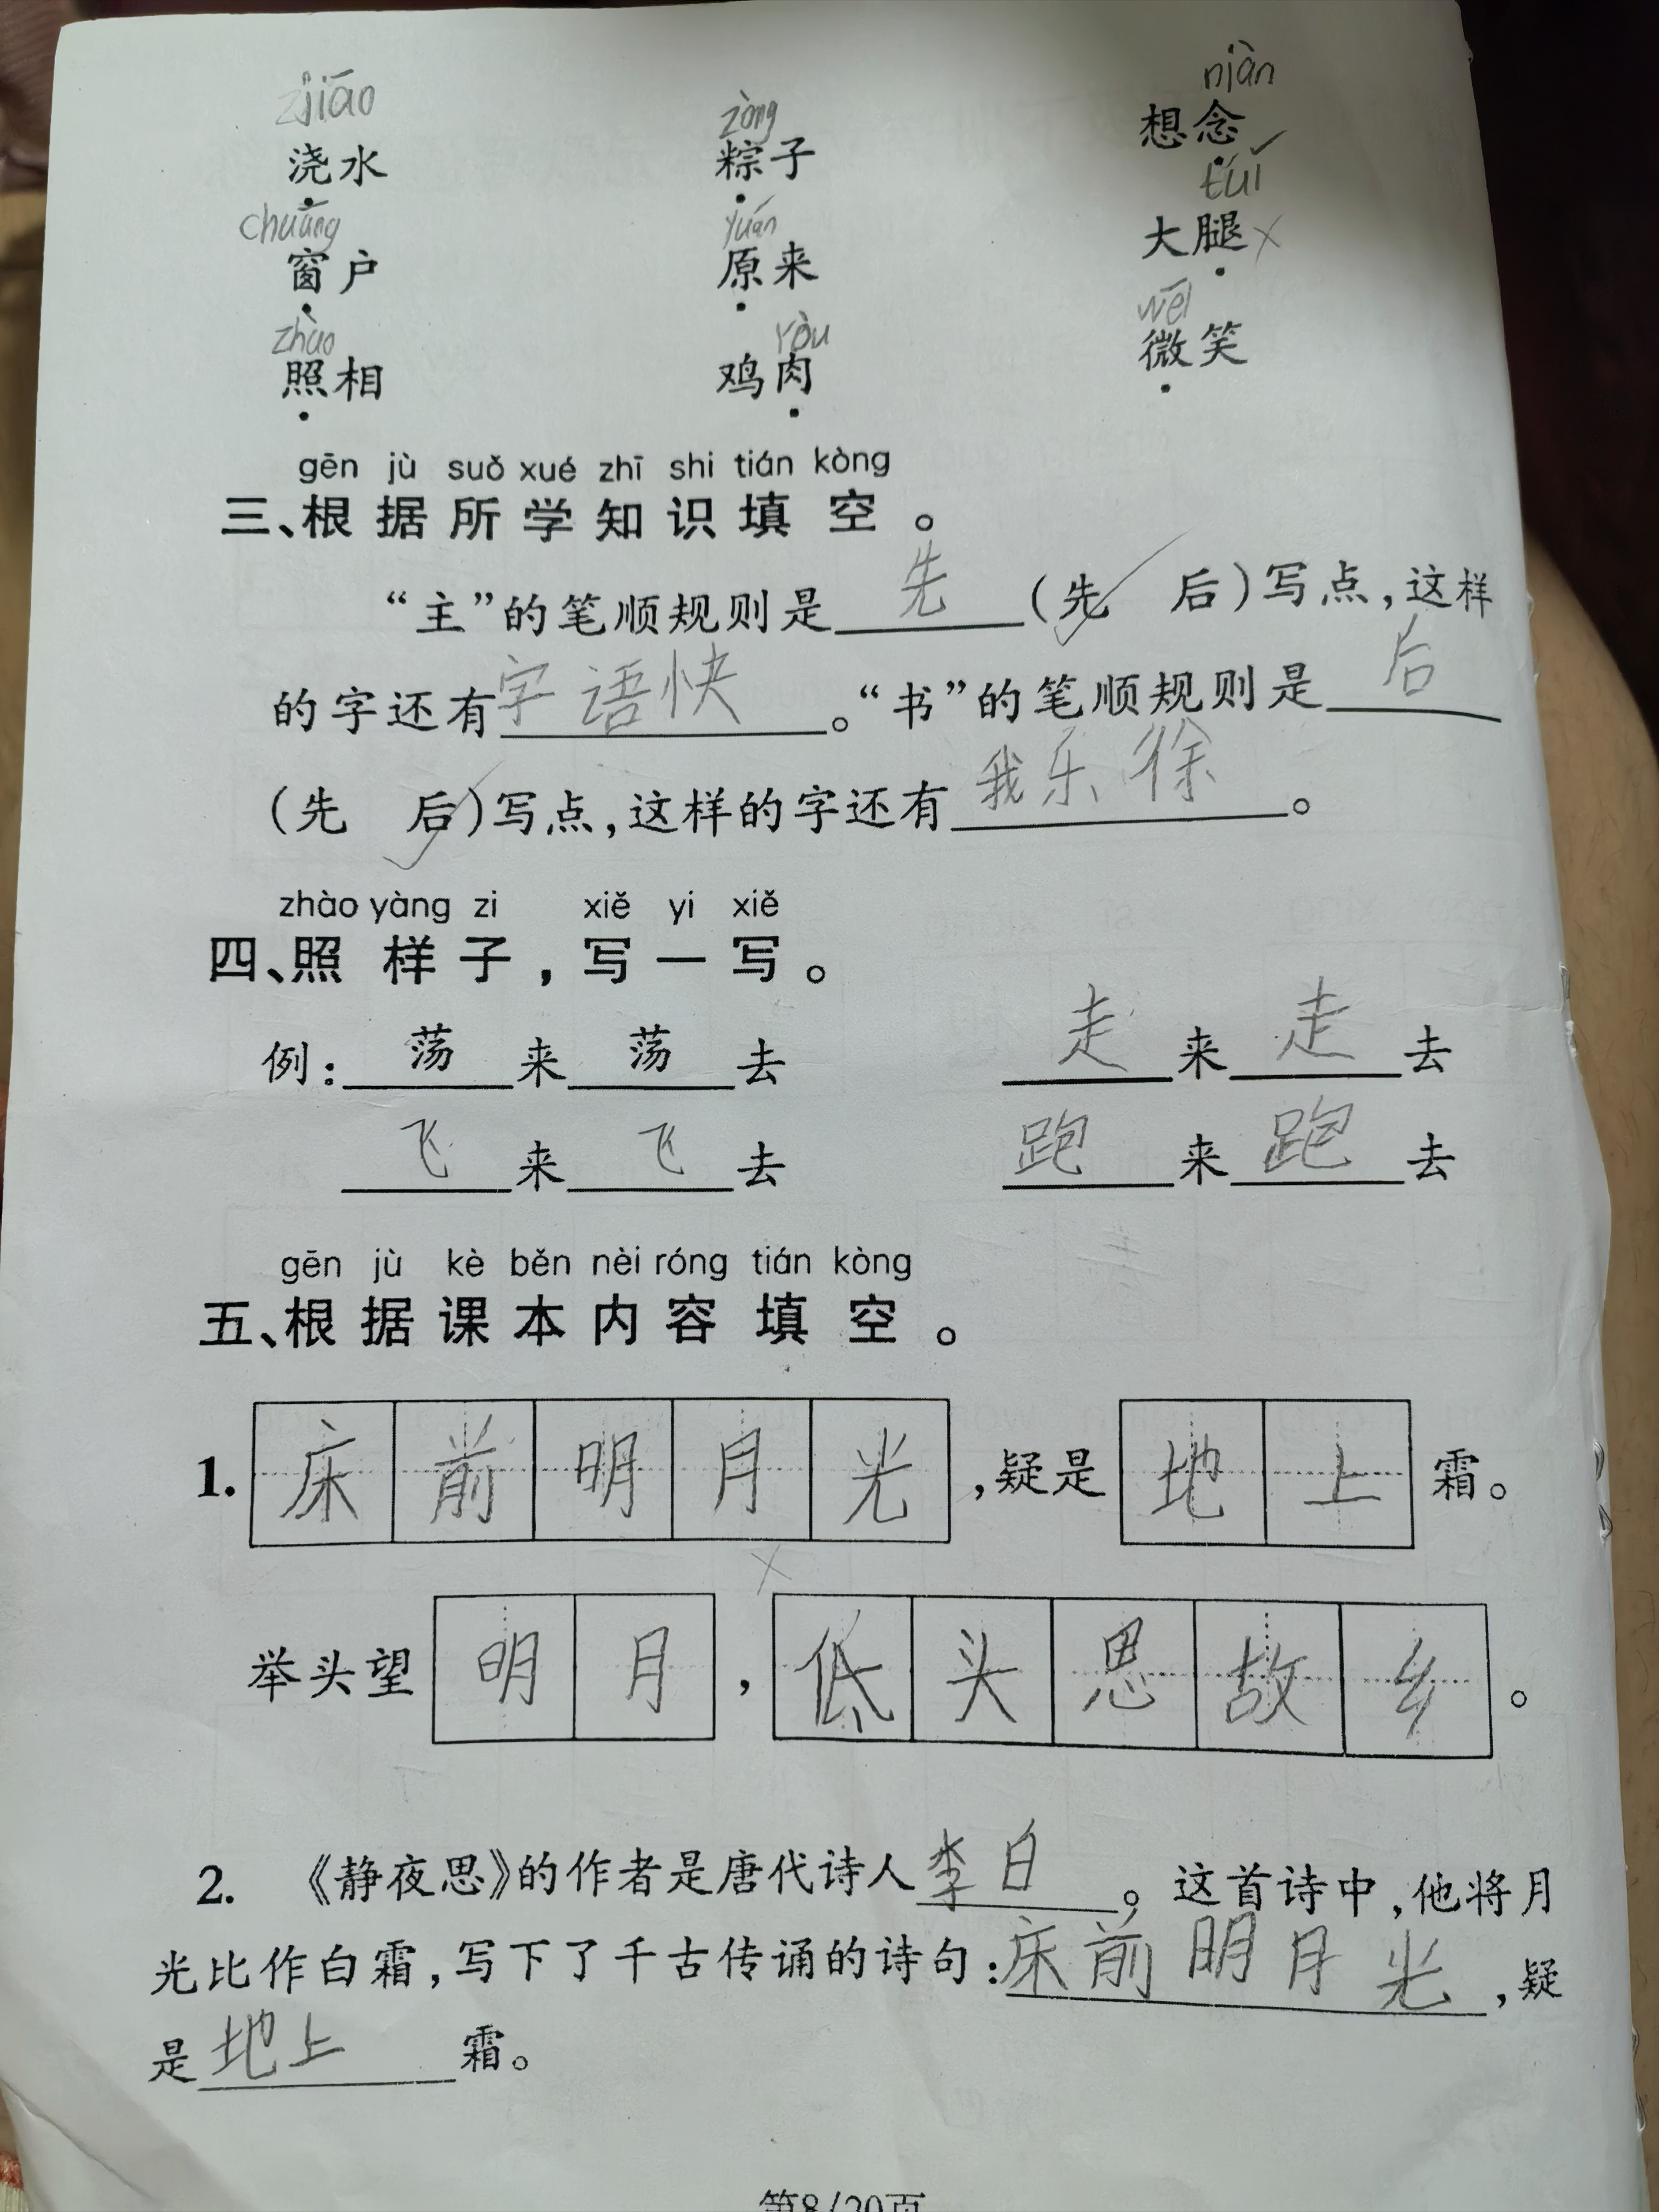 jiāo zòng niàn
浇水 粽子 想念
chuāng yuán tuǐ
窗户 原来 大腿
zhào ròu wēi
照相 鸡肉 微笑
gēn jù suǒ xué zhī shi tián kòng
三、根据所学知识填空。
“主”的笔顺规则是先(先 后)写点,这样
的字还有字 语 快。“书”的笔顺规则是后
(先 后)写点,这样的字还有我 乐 徐。
zhào yàng zi xiě yi xiě
四、照样子,写一写。
例:荡来荡去 走来走去
飞来飞去 跑来跑去
gēn jù kè běn nèi róng tián kòng
五、根据课本内容填空。
1.床前明月光,疑是地上霜。
举头望明月,低头思故乡。
2. 《静夜思》的作者是唐代诗人李白。这首诗中,他将月
光比作白霜,写下了千古传诵的诗句:床前明月光,疑
是地上霜。
第8/20页